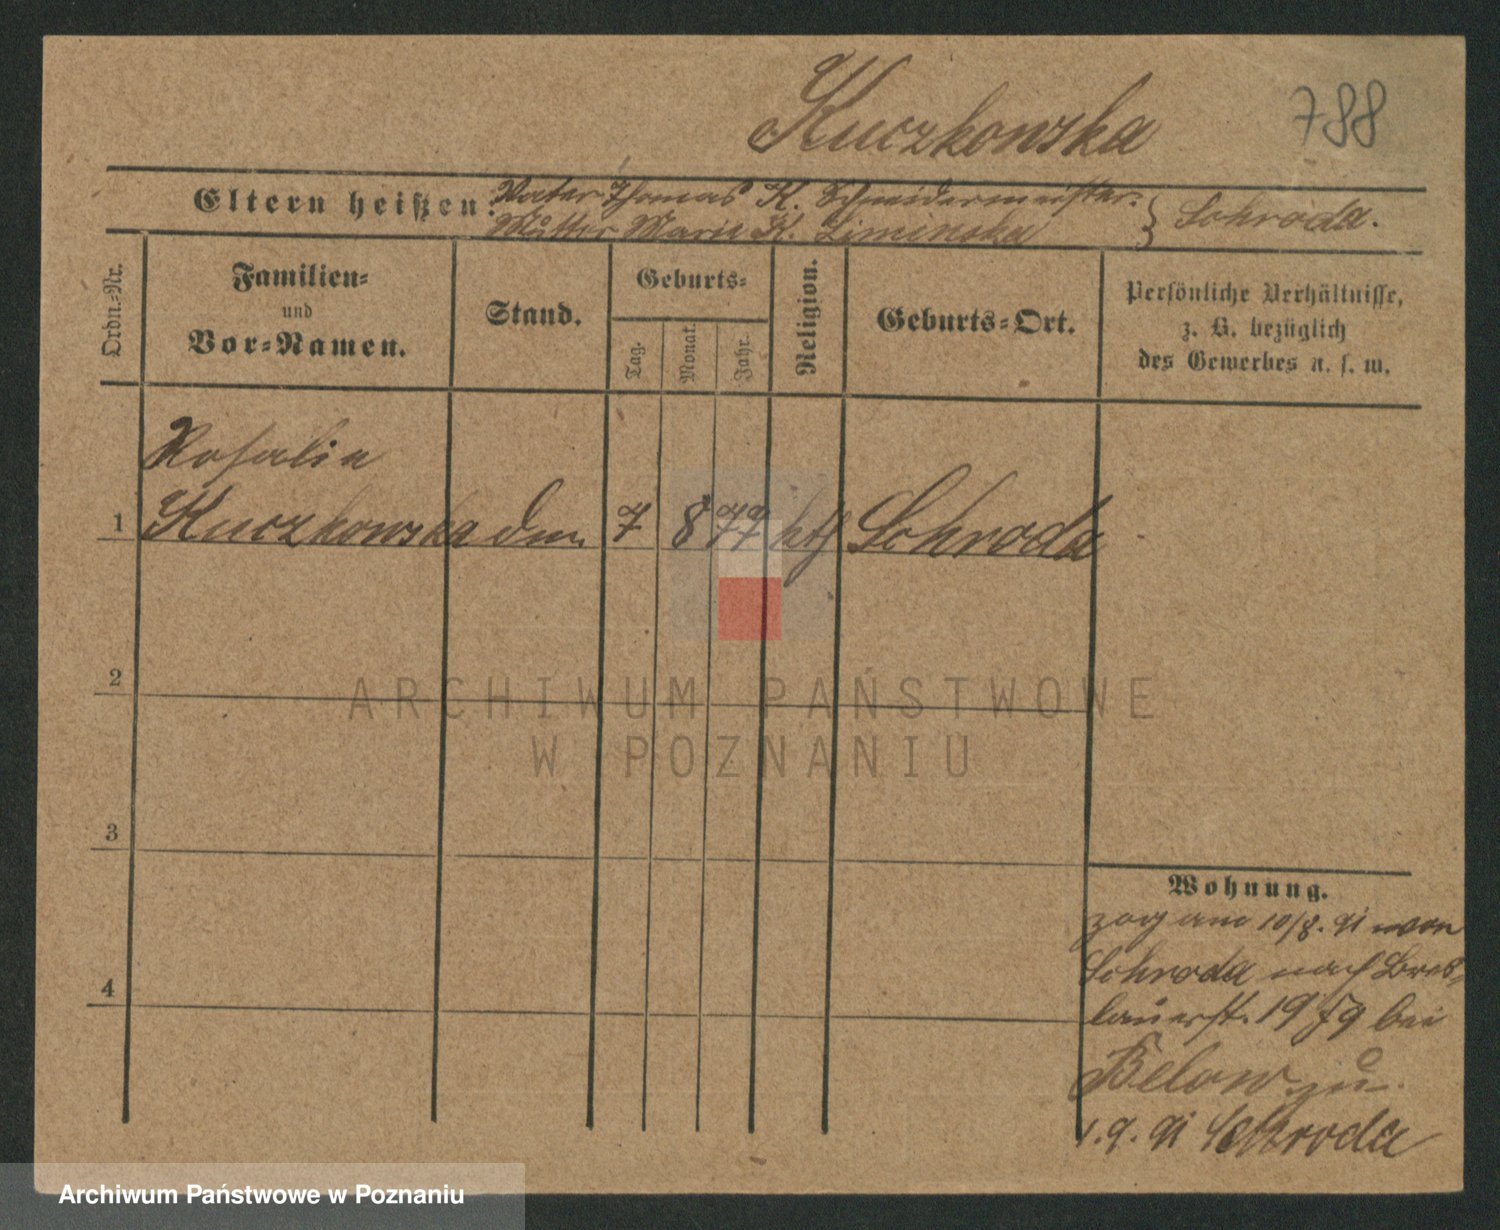 Kuczkowska
788
Eltern heißen: Vater Thomas K. Schneidermeister
Mutter Marie K. Ziminska } Schroda.
Ordn.-Nr.
Familien-
und
Vor-Namen.
Stand.
Geburts-
Tag.
Monat.
Jahr.
Religion.
Geburts-Ort.
Persönliche Verhältnisse,
z. B. bezüglich
des Gewerbes u. s. w.
Rosalie
1 Kuczkowska 7 8 77 kth Schroda
2
3
4
Wohnung.
zog am 10/8. 91 von
Schroda nach Bres-
lauerst. 19 bei
Below zu
1. 9. 91 Schroda
ARCHIWUM PAŃSTWOWE
W POZNANIU
Archiwum Państwowe w Poznaniu